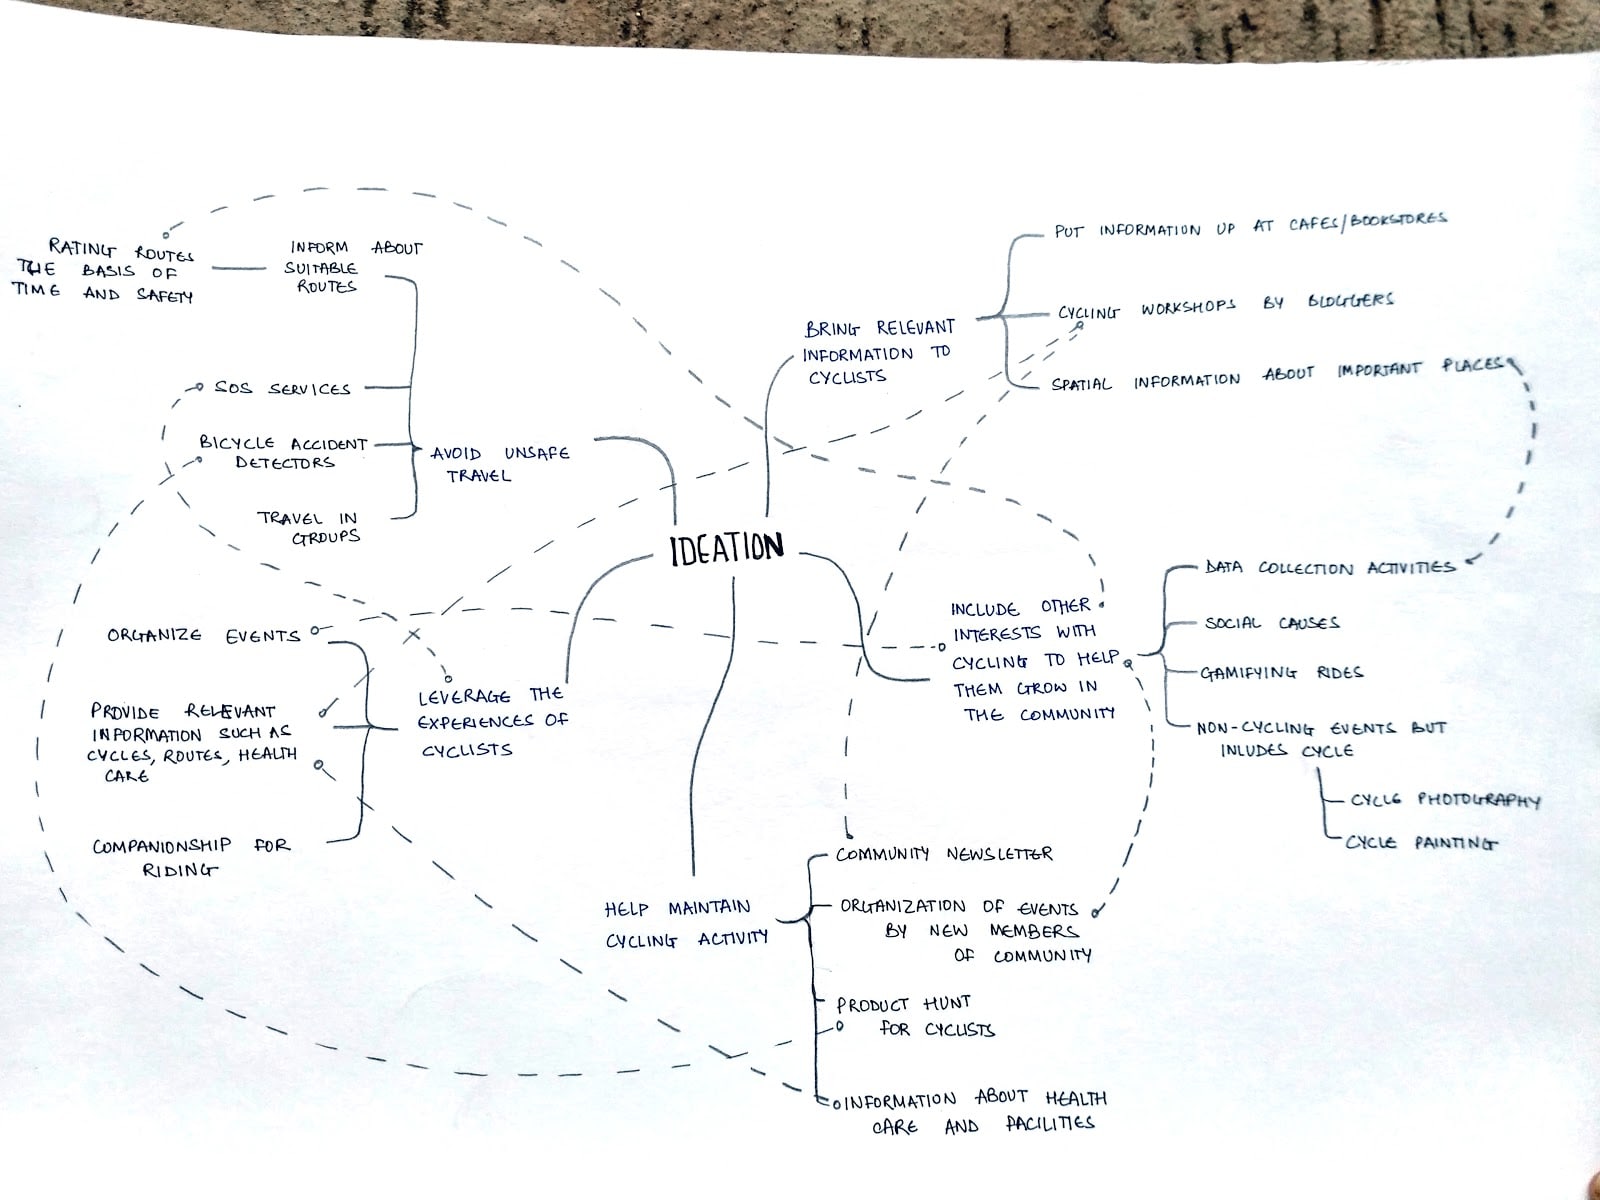 RATING ROUTES
THE BASIS OF
TIME AND SAFETY
INFORM ABOUT
SUITABLE
ROUTES
SOS SERVICES
BICYCLE ACCIDENT
DETECTORS
TRAVEL IN
GROUPS
AVOID UNSAFE
TRAVEL
BRING RELEVANT
INFORMATION TO
CYCLISTS
PUT INFORMATION UP AT CAFES/BOOKSTORES
CYCLING WORKSHOPS BY BLOGGERS
SPATIAL INFORMATION ABOUT IMPORTANT PLACES
IDEATION
ORGANIZE EVENTS
PROVIDE RELEVANT
INFORMATION SUCH AS
CYCLES, ROUTES, HEALTH
CARE
COMPANIONSHIP FOR
RIDING
LEVERAGE THE
EXPERIENCES OF
CYCLISTS
INCLUDE OTHER
INTERESTS WITH
CYCLING TO HELP
THEM GROW IN
THE COMMUNITY
DATA COLLECTION ACTIVITIES
SOCIAL CAUSES
GAMIFYING RIDES
NON-CYCLING EVENTS BUT
INLUDES CYCLE
CYCLE PHOTOGRAPHY
CYCLE PAINTING
HELP MAINTAIN
CYCLING ACTIVITY
COMMUNITY NEWSLETTER
ORGANIZATION OF EVENTS
BY NEW MEMBERS
OF COMMUNITY
PRODUCT HUNT
FOR CYCLISTS
INFORMATION ABOUT HEALTH
CARE AND FACILITIES